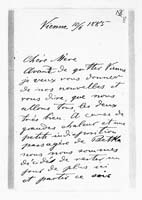 Vienne 10/6 1885
Chère Mère
Avant de quitter Vienne
je veux vous donner
de nos nouvelles et
vous dire que nous
allons tous les deux
très bien. A cause de
grandes chaleurs et une
petite indisposition
passagère de
nous nous sommes
décidés de rester un
jour de plus ici
et partir ce soir